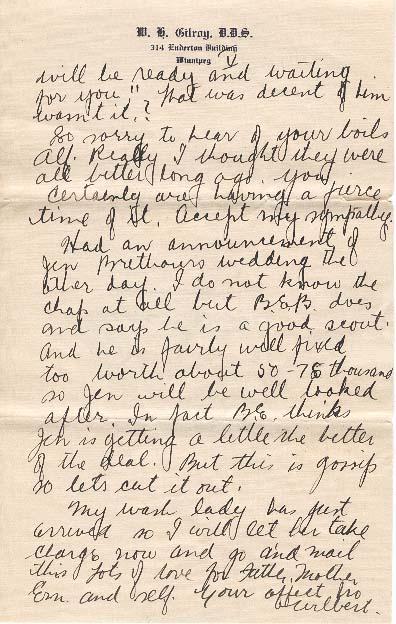 W. H. Gilroy, D.D.S.
314 Enderton Building
Winnipeg V
will be ready and waiting
for you" That was decent of him
wasnt it.?
So sorry to hear of your boils
Alf. Really I thought they were
all better long ago. You
certainly are having a fierce
time of it. Accept my sympathy.
Had an announcement of
Jen Brethours wedding the
other day. I do not know the
chap at all but B.E.B does
and says he is a good scout.
And he is fairly well fixed
too worth about 50-75 thousand
so Jen will be well looked
after. In fact B.E. thinks
Jen is getting a little the better
of the deal. But this is gossip
so lets cut it out.
My wash lady has just
arrived so I will let her take
charge now and go and mail
this Lots of love for Father, Mother
Ern. and self. Your affect bro
Wilbert.